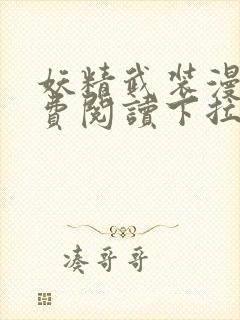 妖精武装漫
費閱讀下拉
凑哥哥